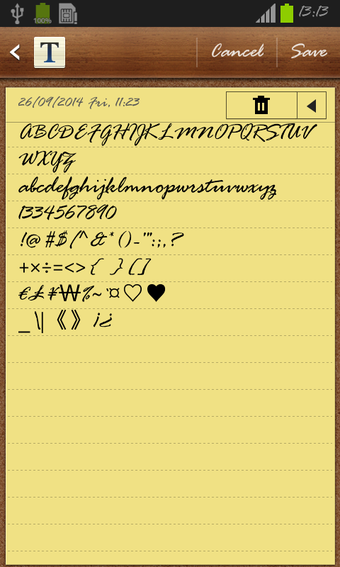 100%
13:13
T
Cancel
Save
26/09/2014 Fri. 11:23
ABCDEFGHIJKLMNOPQRSTUV
WXYZ
abcdefghijklmnopwrstuvwxyz
1334567890
!@#$/^&*()-'":;,?
+×÷=<>{ }[]
€£¥₩%~`¤♡♥
_\|《》¡¿